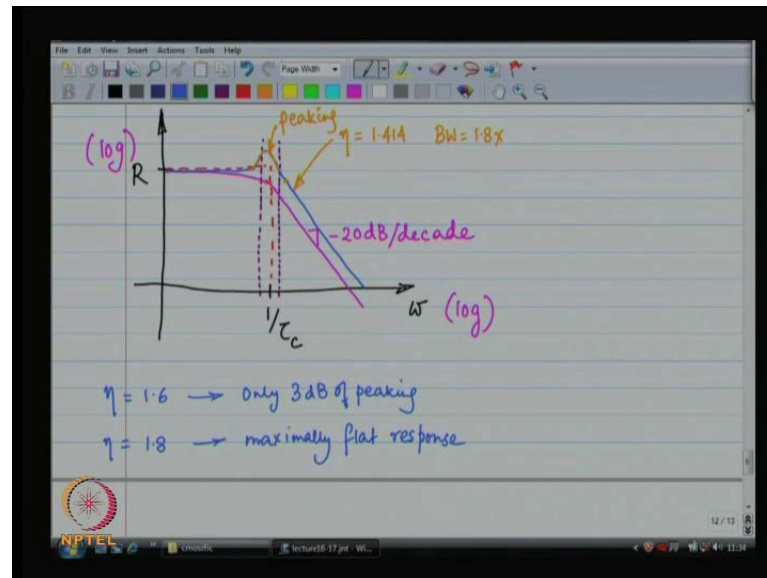 File Edit View Insert Actions Tools Help
Page Width
B I
(log)
R
peaking
η = 1.414 BW = 1.8x
-20dB/decade
1/τc
ω (log)
η = 1.6 → only 3 dB of peaking
η = 1.8 → maximally flat response
NPTEL
12 / 13
cmosrfic
lecture16-17.jnt - Wi...
11:34